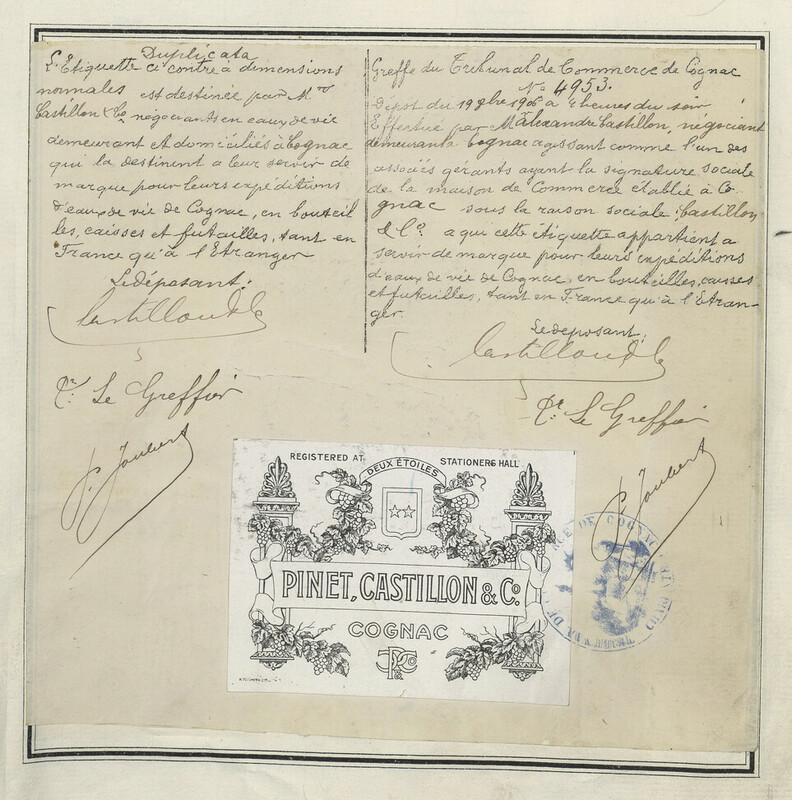 Duplicata
L'Etiquette ci contre à dimensions
normales est destinée par Mrs
Castillon & Co négociants en eaux de vie
demeurant et domiciliés à Cognac
qui la destinent a leur servir de
marque pour leurs expéditions
d'eaux de vie de Cognac, en bouteil
les, caisses et futailles, tant en
France qu'à l'Etranger
Le déposant.
Castillon & Co
Pr. Le Greffier
P. Joubert
Greffe du Tribunal de Commerce de Cognac
No 4953.
Dépot du 19 9bre 1906 à 4 heures du soir
Effectué par M. Alexandre Castillon, négociant
demeurant a Cognac agissant comme l'un des
associés gérants ayant la signature sociale
de la maison de Commerce etablie à Co
gnac sous la raison sociale: Castillon
& Co. a qui cette étiquette appartient a
servir de marque pour leurs expéditions
d'eaux de vie de Cognac, en bouteilles, caisses
et futailles, tant en France qu'à l'Etran-
ger.
Le déposant,
Castillon & Co
Pr. Le Greffier
P. Joubert
REGISTERED AT STATIONERS HALL
DEUX ÉTOILES
PINET, CASTILLON & Co.
COGNAC
DE COGNAC